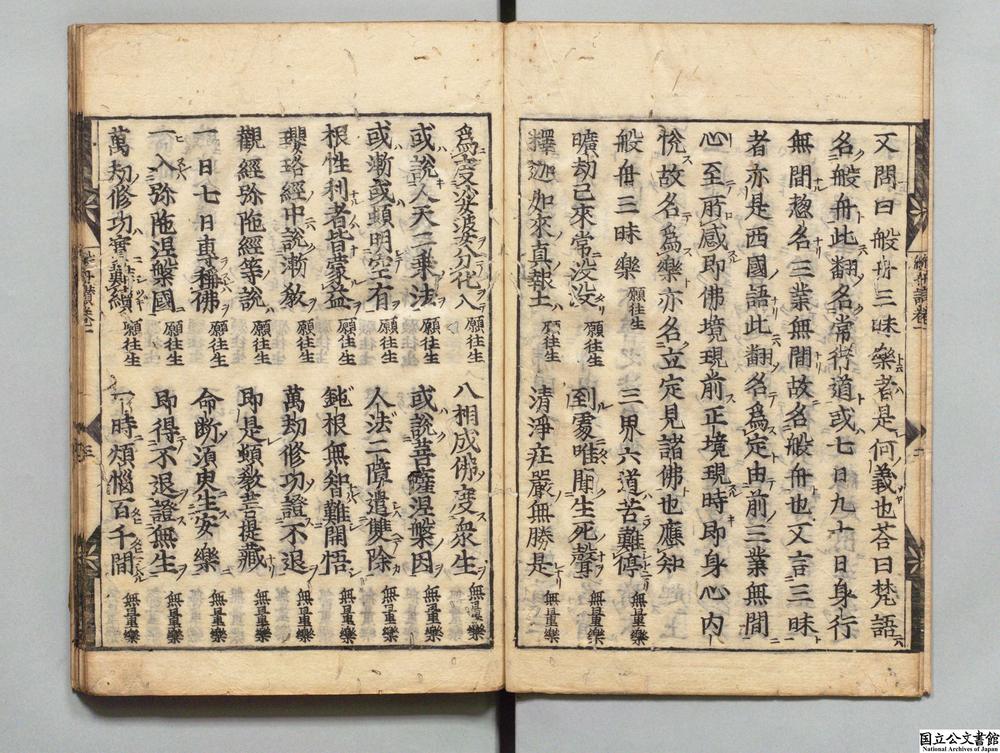 又問曰般舟三昧樂者是何義也荅曰梵語
名般舟此翻名常行道或七日九十日身行
無間惣名三業無間故名般舟也又言三昧
者亦是西國語此翻名爲定由前三業無間
心至所感即佛境現前正境現時即身心内
悅故名爲樂亦名立定見諸佛也應知
般舟三昧樂 願往生 三界六道苦難停 無量樂
曠劫已來常没没 願往生 到處唯聞生死聲 無量樂
釋迦如來真報土 願往生 清淨莊嚴無勝是 無量樂
爲度娑婆分化入 願往生 八相成佛度衆生 無量樂
或說人天二乗法 願往生 或說菩薩涅槃因 無量樂
或漸或頓明空有 願往生 人法二障遣雙除 無量樂
根性利者皆蒙益 願往生 鈍根無智難開悟 無量樂
瓔珞經中說漸教 願往生 萬劫修功證不退 無量樂
觀經弥陁經等說 願往生 即是頓教菩提藏 無量樂
一日七日專稱佛 願往生 命斷須臾生安樂 無量樂
一入弥陁涅槃國 願往生 即得不退證無生 無量樂
萬劫修功實難續 願往生 一時煩惱百千間 無量樂
般舟讚卷一
三
国立公文書館
National Archives of Japan